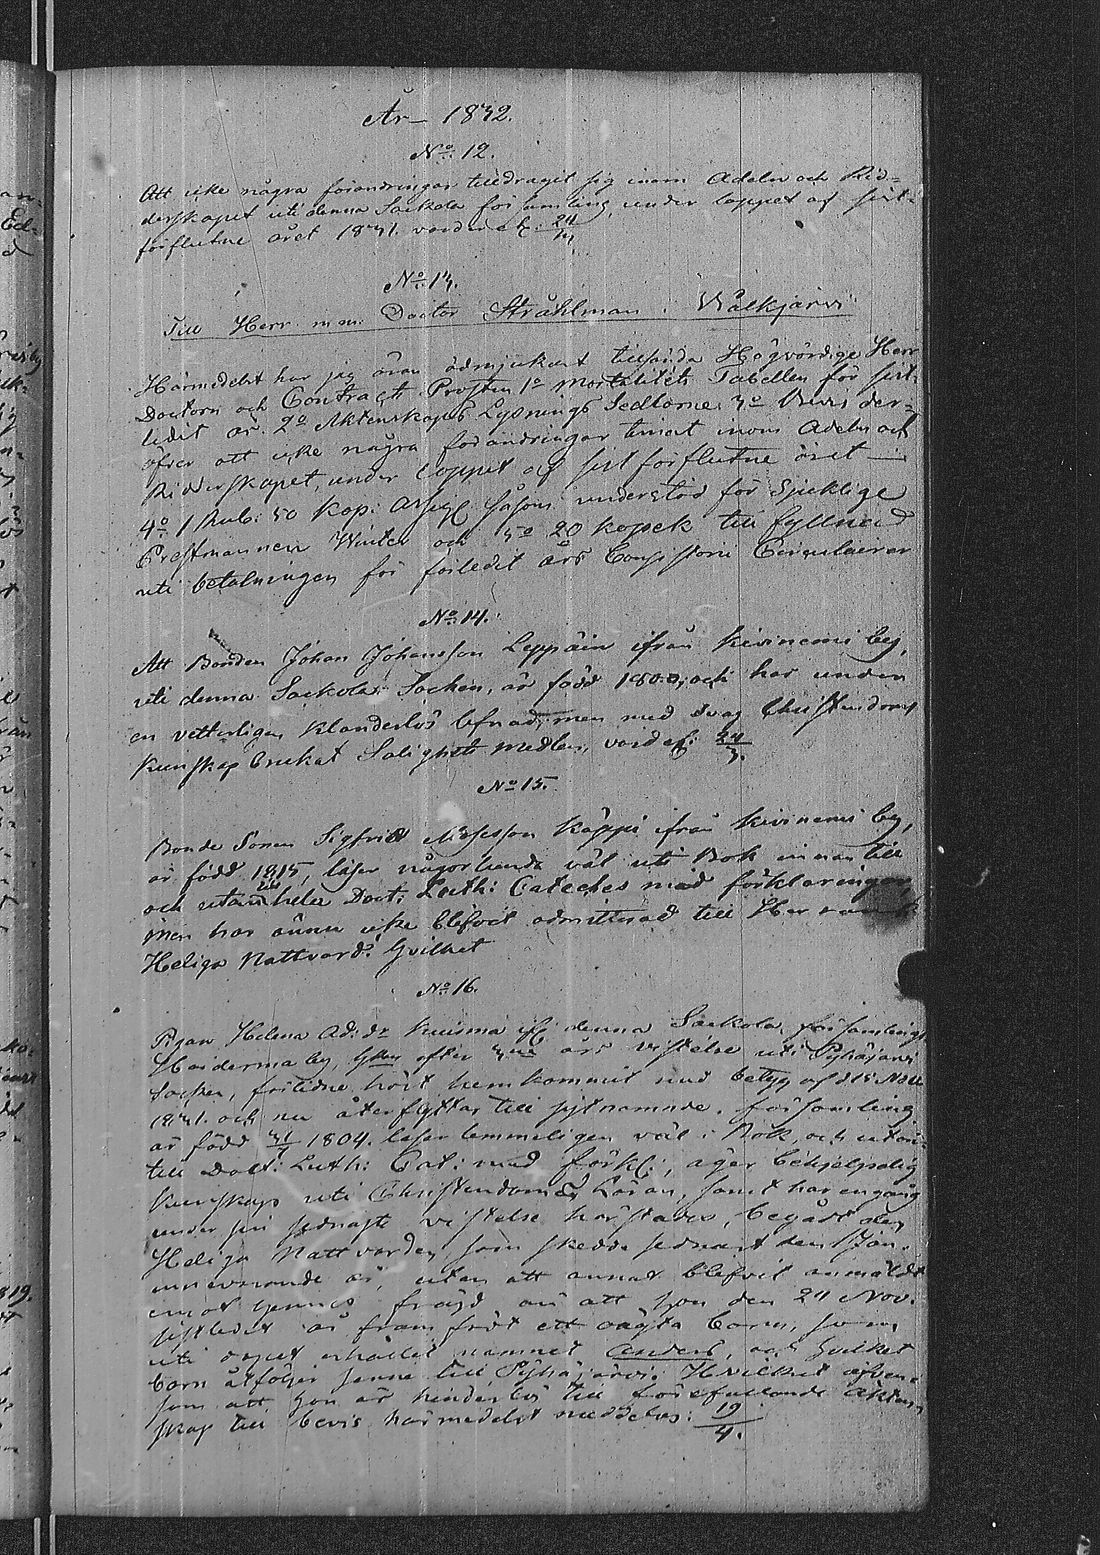 År 1832.
No 12.
Att icke några förändringar tilldragit sig inom Adeln och Rid-
derskapet uti denna Sackola församling, under loppet af sist-
förflutne året 1831. varder att: 24/3.
No 13.
Till Herr m.m. Doctor Stråhlman. Walkjärvi
Härmedelst har jag äran ödmjukast tillsända Högvördige Herr
Doctorn och Contracts Prosten 1o Mortalitets Tabellen för sist-
ledit år. 2o Äktenskaps Lysnings Sedlarne. 3o Bevis der-
öfver att icke några förändringar timat inom Adeln och
Ridderskapet, under loppet af sist förflutne året —
4o 1 Rub: 50 kop: såsom understöd för Sjuklige
Prestmannen Winter och 5o 20 kopek till fyllnad
uti betalningen för förledit års Consistorii Circulairer
No 14.
Att Bonden Johan Johansson Leppäin ifrån Kivinemi by,
uti denna Sackola Sochen, är född 1800, och har under
en vitterligen klanderlös lefnad, men med svag Christendoms
kunskap brukat Salighets medlen, vard att: 24/3.
No 15.
Bonde Sonen Sigfrid Köppi ifrån Kivinemi by,
är född 1815, läser någorlunda väl uti Bok innan till
och utan till hela Doct: Luth: Cateches med förklaringar,
men har ännu icke blifvit admitterad till Herrans
Heliga Nattvard: Hvilket
No 16.
Pigan Helena Ad: dr Kuisma ifr denna Sackola församlings
Haiderma by, som efter års vistelse uti Pyhäjärvi
Sochen, förlidne höst hemkommit med betyg af d 15 Nov.
1831. och nu återflyttar till sistnämnde församling
är född 31/7 1804. läser temmeligen väl i Bok, och utan-
till Doct: Luth: Cat: med förkl:, äger behjelpelig
kunskap uti Christendoms Läran, samt har en gång
under sin sednaste vistelse härstädes, begått den
Heliga Nattvarden, som skedde sednast den 1 Jan.
innevarande år, utan att annat blifvit anmäldt
emot hennes frägd än att hon den 24 Nov.
sistledit år framfödt ett oägta barn, som
uti dopet erhållit namnet Anders, och hvilket
barn åtföljer henne till Pyhäjärvi. Hvilket äfven-
som att hon är hinderlös till förefallande Äkten-
skap till bevis härmedelst meddelas: 19/4.